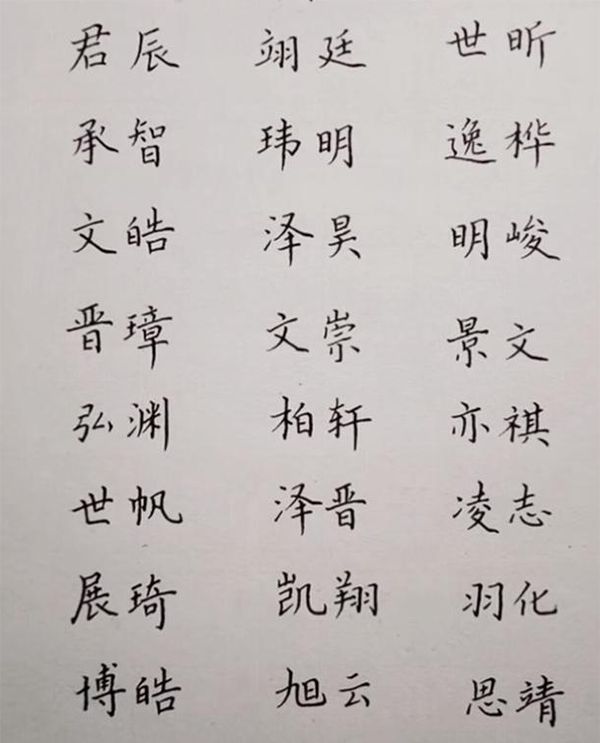 君辰 翊廷 世昕
承智 玮明 逸桦
文皓 泽昊 明峻
晋璋 文崇 景文
弘渊 柏轩 亦祺
世帆 泽晋 凌志
展琦 凯翔 羽化
博皓 旭云 思靖